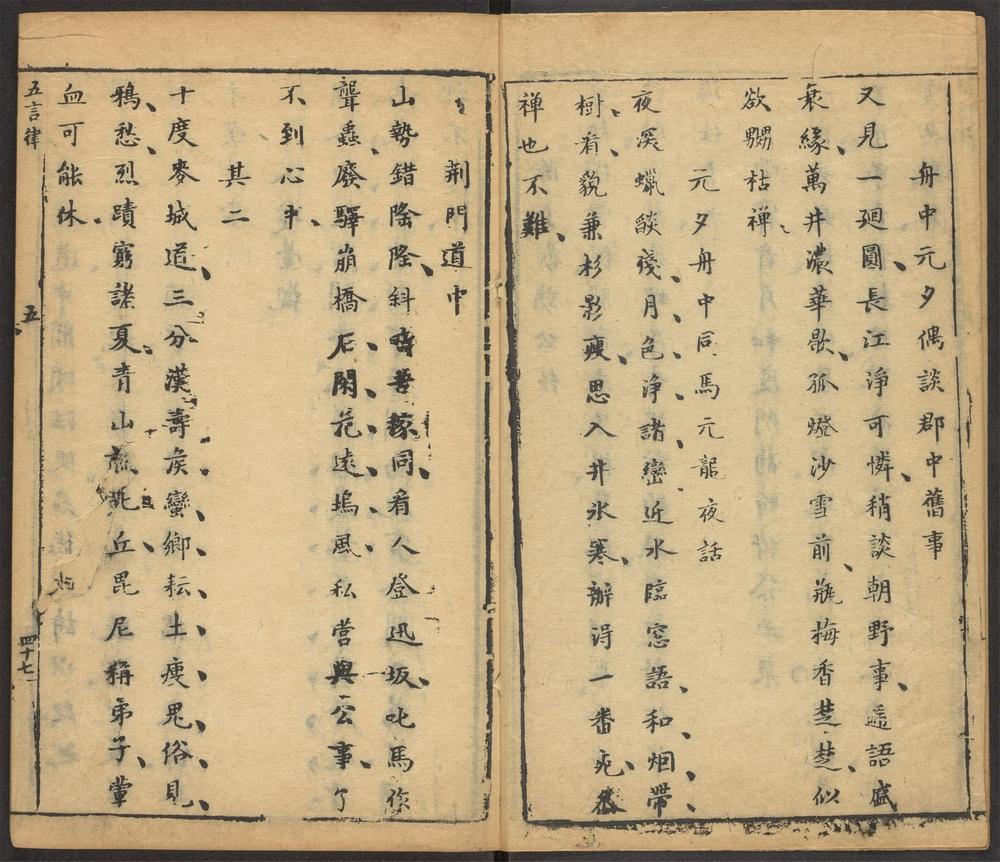 舟中元夕偶談郡中舊事
又見一廻圓長江淨可憐稍談朝野事遥語盛
衰緣萬井濃華歇孤燈沙雪前瓶梅香楚楚似
欲嬲枯禪
元夕舟中同馬元龍夜話
夜深蠟燄殘月色淨諸巒近水臨窓語和烟帶
樹看貌兼杉影瘦思入井氷寒辦得一畨死叅
禅也不難
荆門道中
山勢錯隆隆斜同看人登迅坂叱馬作
聾蟲廢驛崩橋石閑花遠塢風私営與公事了
不到心中
其二
十度麥城道三分漢壽矦蠻鄉耘土瘦鬼俗見
鴉愁烈蹟窮諸夏青山丘毘尼稱弟子葷
血可能休
五言律
五
四十七